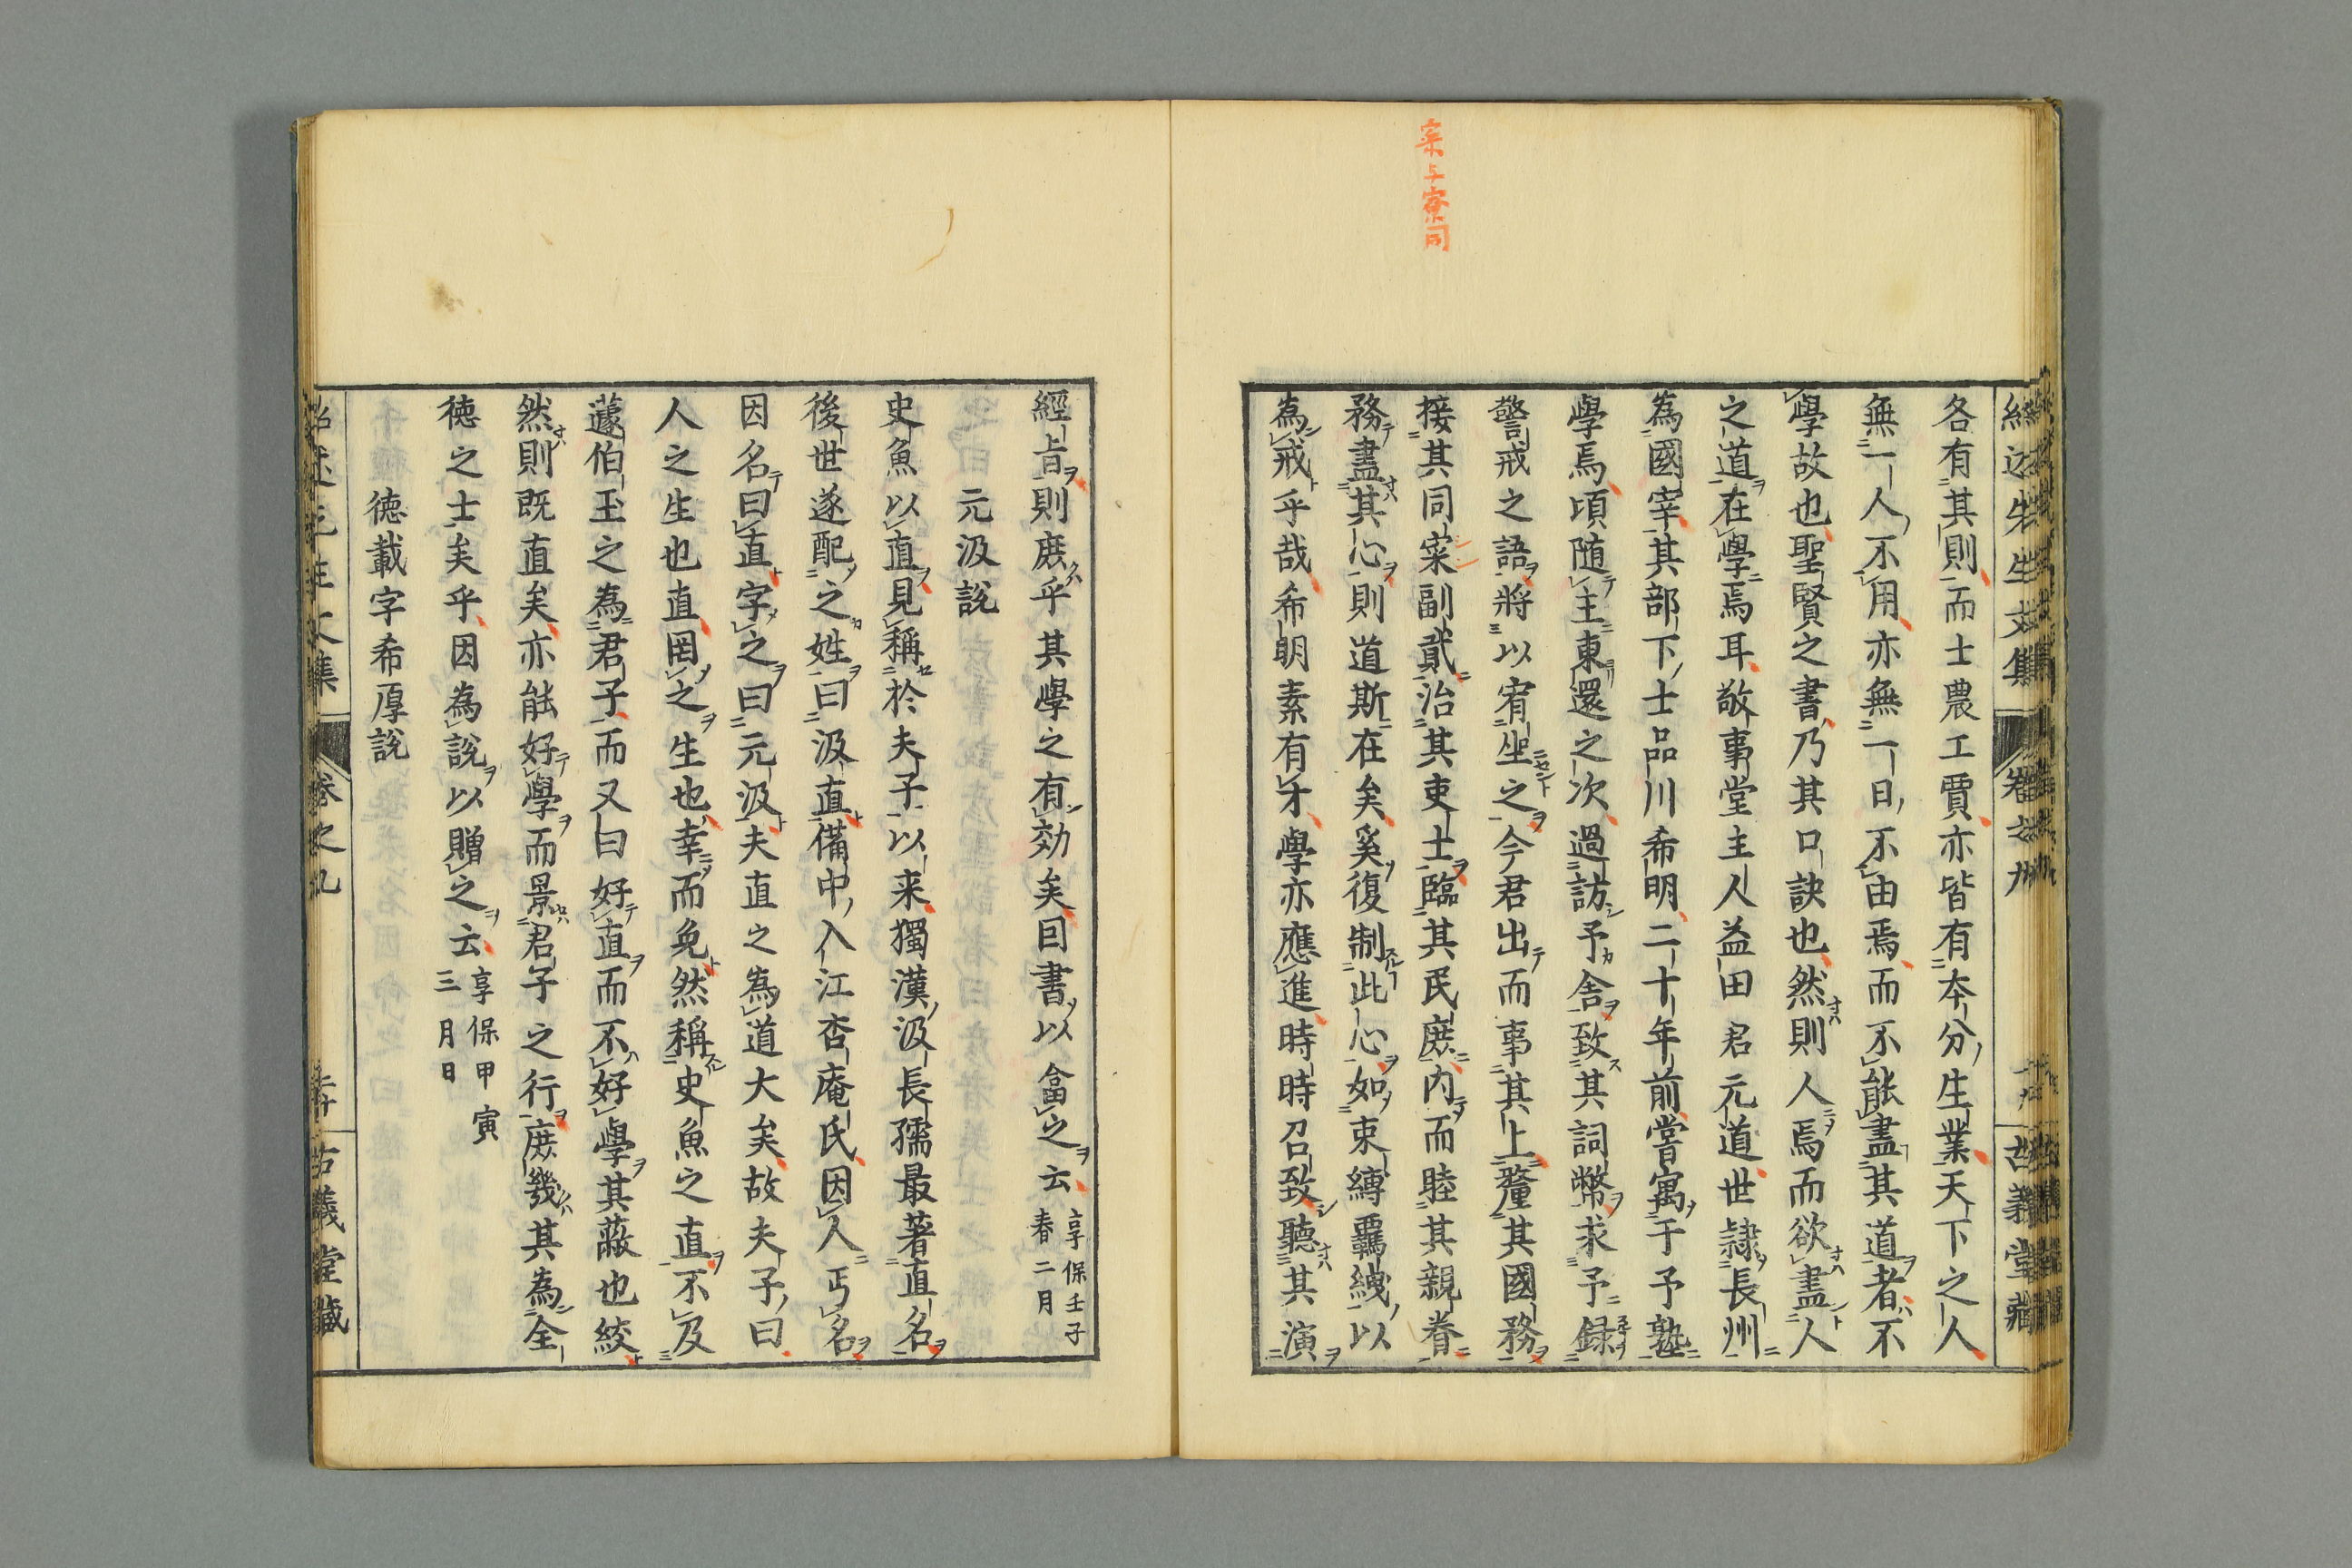 寀与寮同
紹述先生文集
卷之九
古義堂藏
各有其則而士農工賈亦皆有本分生業天下之人
無一人不用亦無一日不由焉而不能盡其道者不
學故也聖賢之書乃其口訣也然則人焉而欲盡人
之道在學焉耳敬事堂主人益田君元道世隷長州
為國宰其部下士品川希明二十年前嘗寓于予塾
學焉頃随主東還之次過訪予舎致其詞幣求予録
警戒之語將以宥坐之今君出而事其上釐其國務
接其同寀副貳治其吏士臨其民庶内而睦其親眷
務盡其心則道斯在矣奚復制此心如束縛羈絏以
為戒乎哉希明素有才學亦應進時時召致聽其演
經旨則庶乎其學之有効矣囙書以畣之云
享保壬子
春二月
元汲説
史魚以直見稱於夫子以来獨漢汲長孺最著直名
後世遂配之姓曰汲直備中入江杏庵氏因人丐名
因名曰直字之曰元汲夫直之為道大矣故夫子曰
人之生也直罔之生也幸而免然稱史魚之直不及
蘧伯玉之為君子而又曰好直而不好學其蔽也絞
然則既直矣亦能好學而景君子之行庶幾其為全
徳之士矣乎因為説以贈之云
享保甲寅
三月日
徳載字希厚説
卷之九
古義堂藏